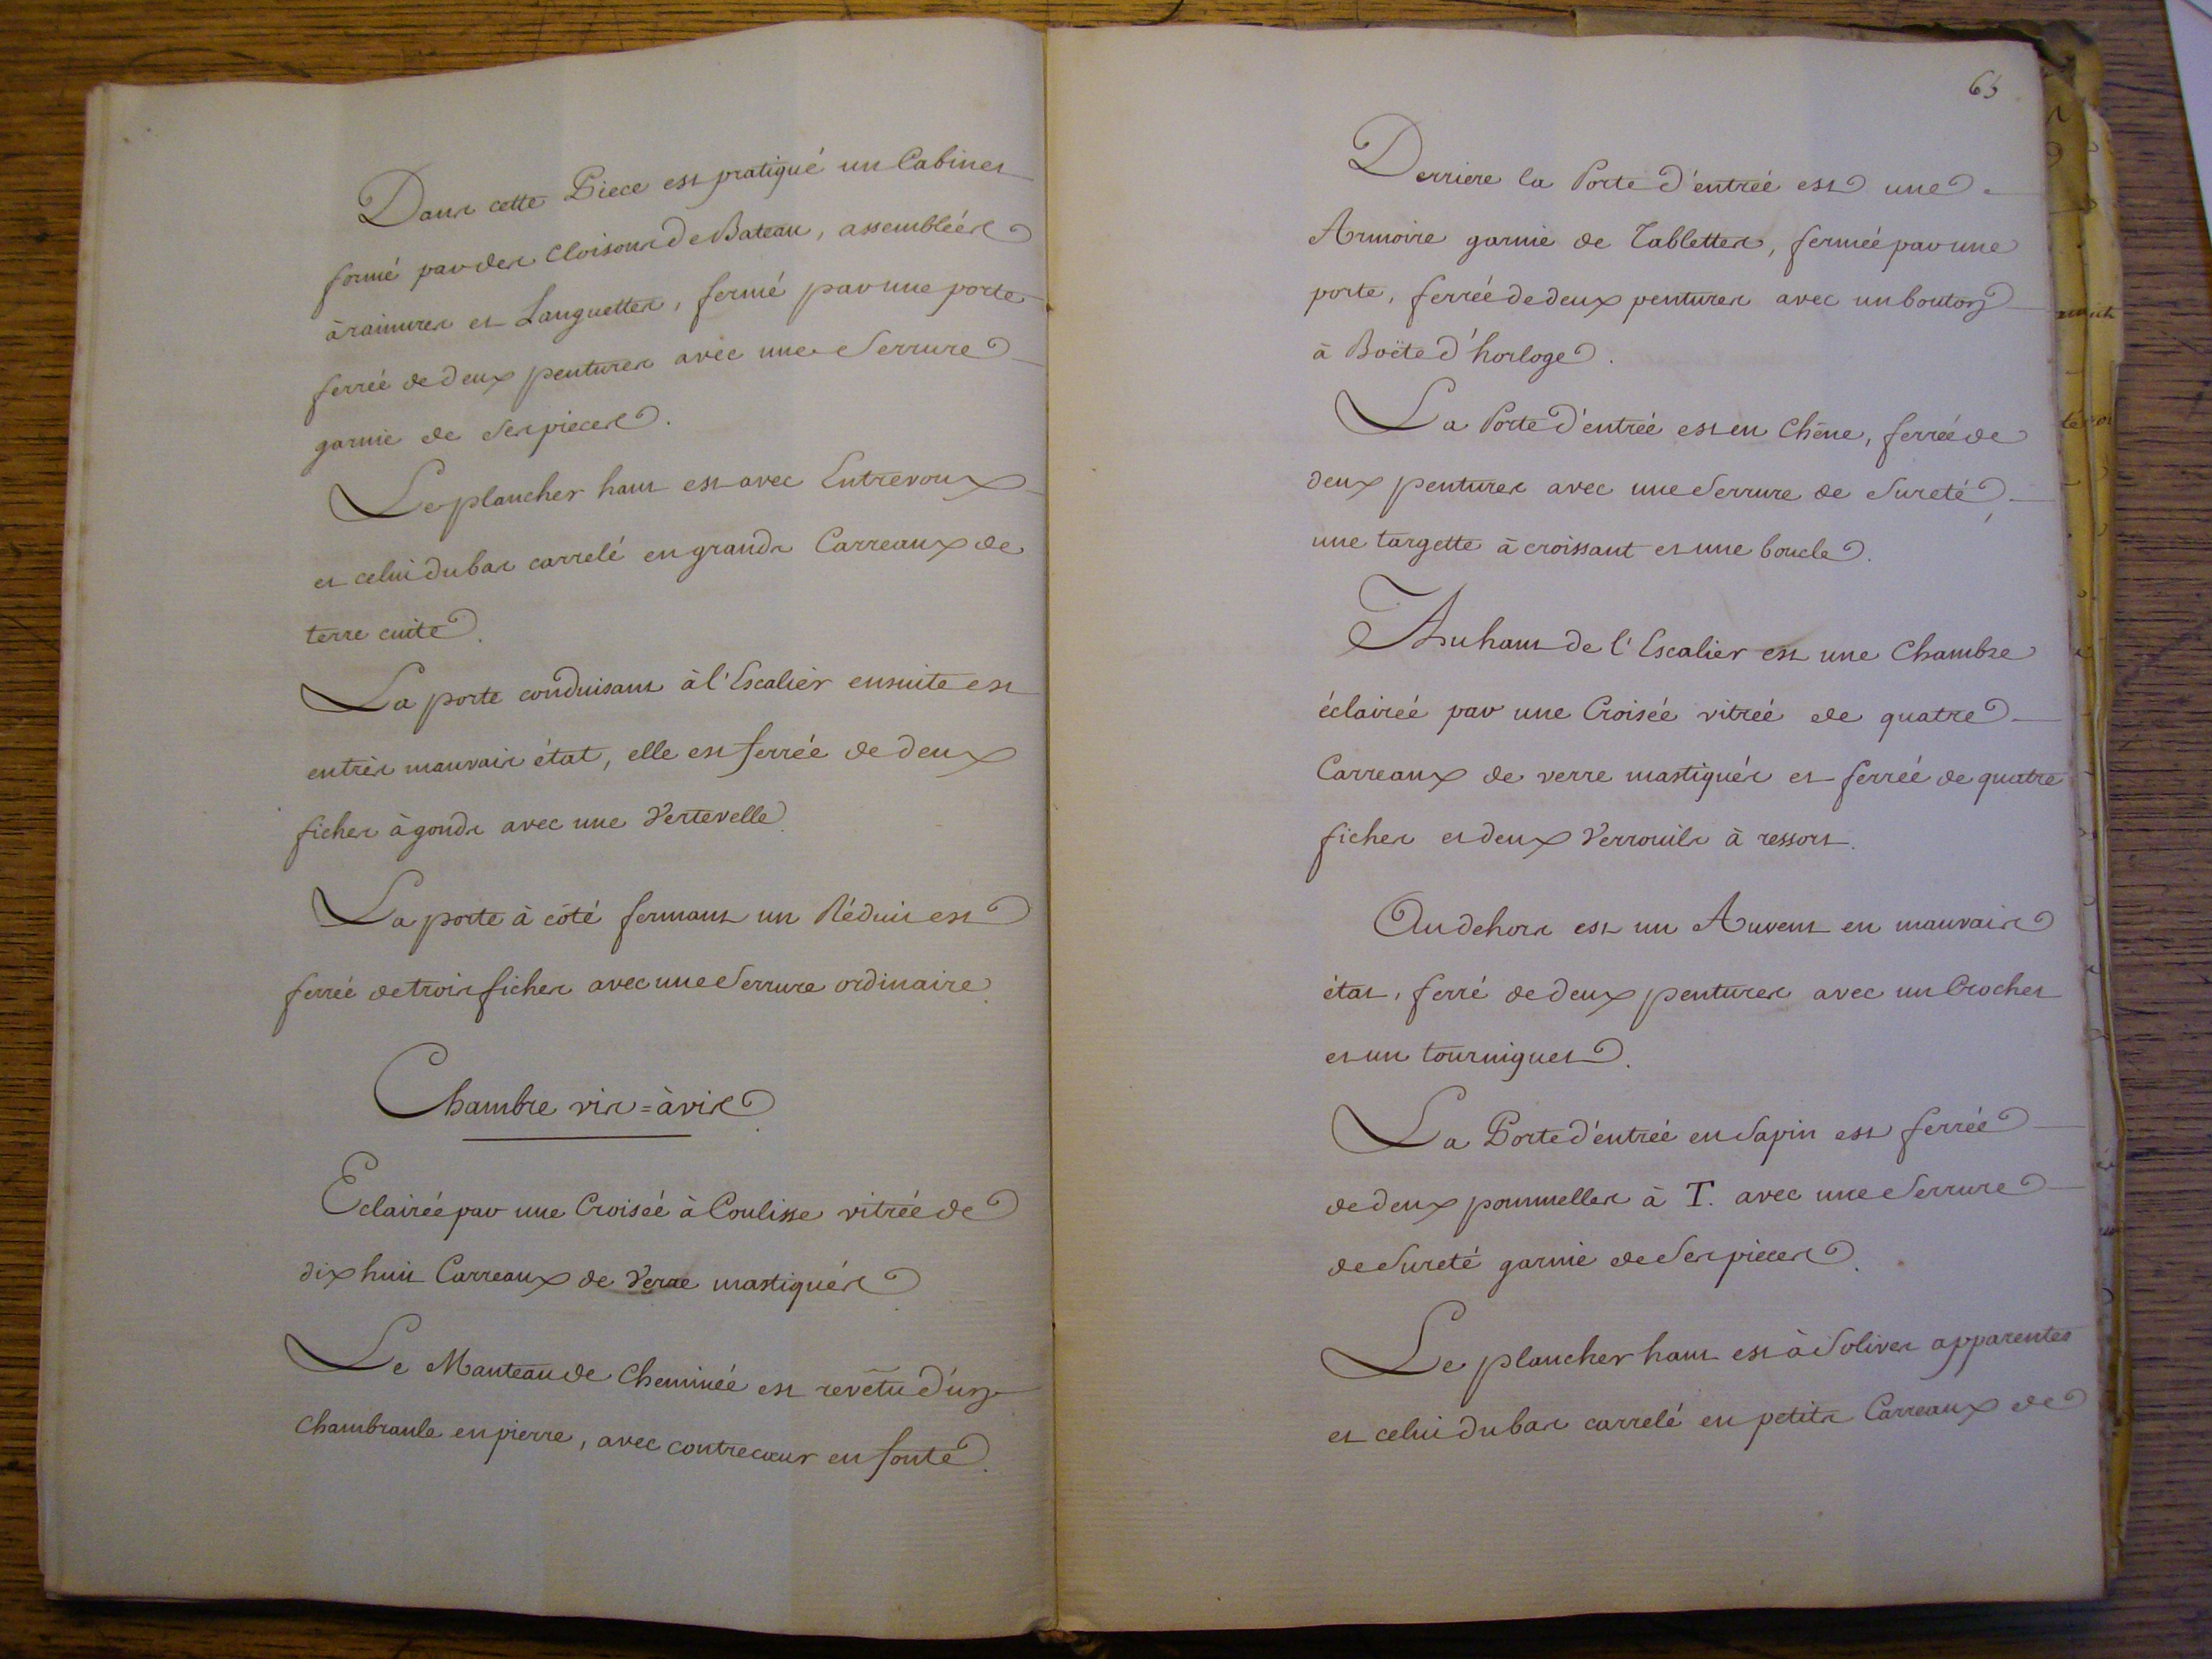 Dans cette Piece est pratiqué un Cabinet
formé par des Cloisons de Bateau, assemblées
à rainures et Languettes, fermé par une porte
ferrée de deux pentures avec une Serrure
garnie de Ses pieces.
Le plancher haut est avec Entrevoux
et celui du bas carrelé en grands Carreaux de
terre cuite.
La porte conduisant à l'Escalier ensuite est
en très mauvais état, elle est ferrée de deux
fiches à gonds avec une Vertevelle.
La porte à côté fermant un Réduit est
ferrée de trois fiches avec une Serrure ordinaire.
Chambre vis=à vis.
Eclairée par une Croisée à Coulisse vitrée de
dix huit Carreaux de Verre mastiqués
Le Manteau de Cheminée est revêtu d'un
Chambranle en pierre, avec contrecœur en fonte.
65
Derriere la Porte d'entrée est une
Armoire garnie de Tablettes, fermée par une
porte, ferrée de deux pentures avec un bouton
à Boëte d'horloge.
La Porte d'entrée est en Chêne, ferrée de
deux pentures avec une Serrure de Sureté,
une targette à croissant et une boucle.
Au haut de l'Escalier est une Chambre
éclairée par une Croisée vitrée de quatre
Carreaux de verre mastiqués et ferrée de quatre
fiches et deux Verrouils à ressort.
Au dehors est un Auvent en mauvais
état, ferré de deux pentures avec un Crochet
et un tourniquet.
La Porte d'entrée en Sapin est ferrée
de deux poumelles à T. avec une Serrure
de Sureté garnie de Ses pieces.
Le plancher haut est à Solives apparentes
et celui du bas carrelé en petits Carreaux de